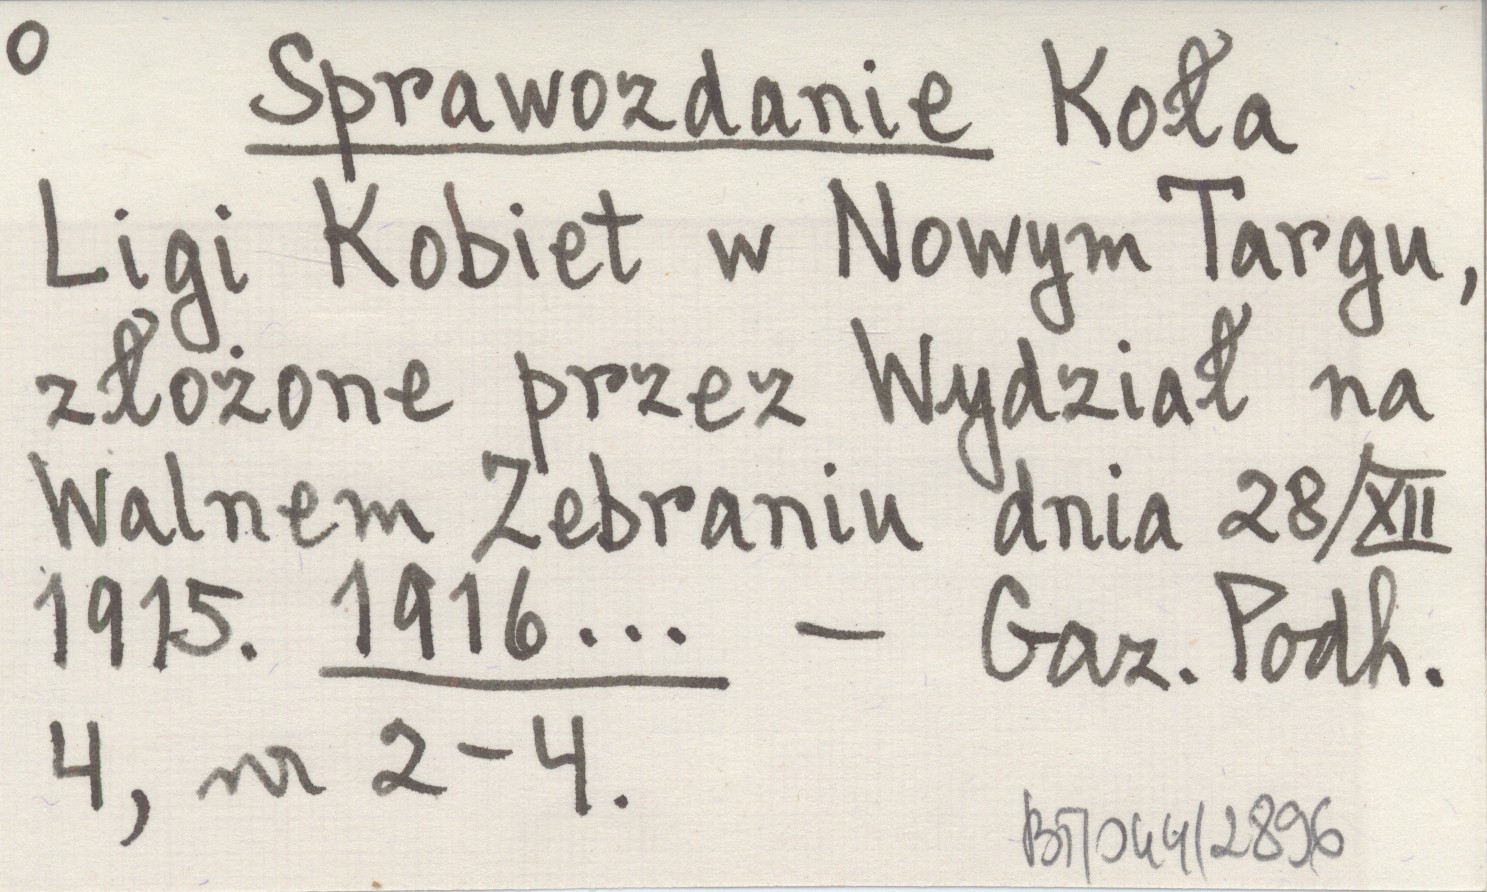 O
Sprawozdanie Koła
Ligi Kobiet w Nowym Targu,
złożone przez Wydział na
Walnem Zebraniu dnia 28/XII
1915. 1916... – Gaz. Podh.
4, nr 2–4.
BT/044/2896